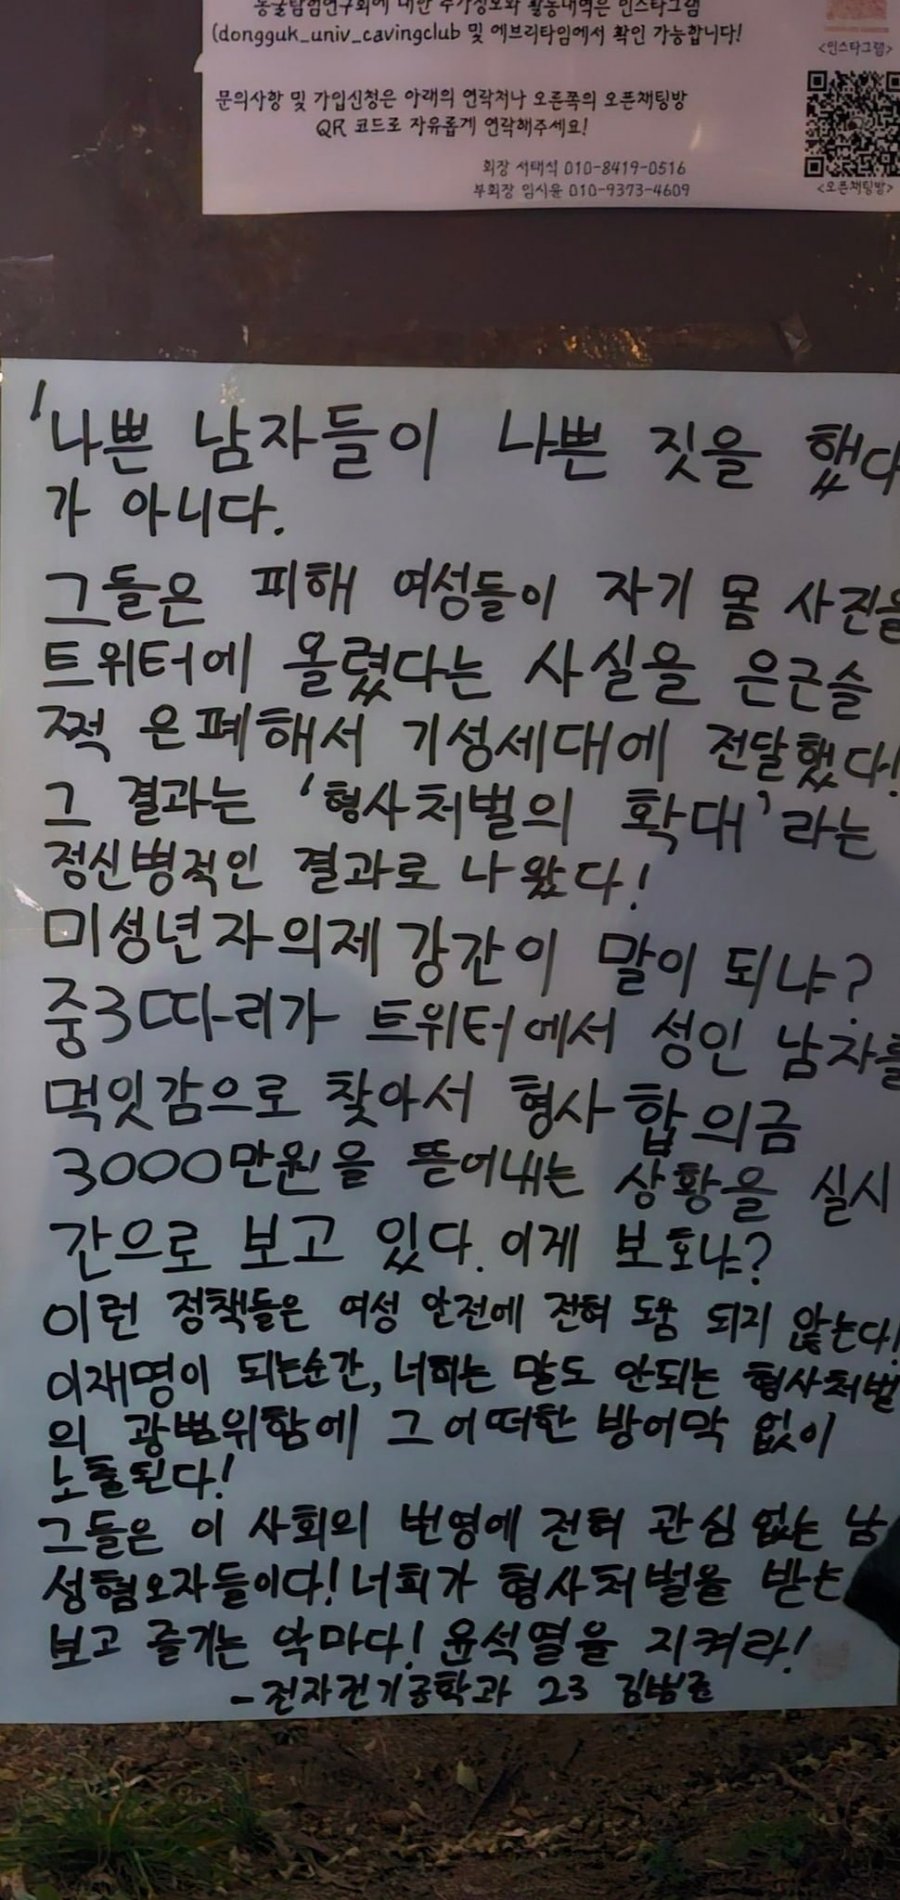 동굴탐험연구회에 대한 추가정보와 활동내역은 인스타그램
(dongguk_univ_cavingclub 및 에브리타임에서 확인 가능합니다!
<인스타그램>
문의사항 및 가입신청은 아래의 연락처나 오른쪽의 오픈채팅방
QR 코드로 자유롭게 연락해주세요!
회장 서태식 010-8419-0516
부회장 임시윤 010-9373-4609
<오픈채팅방>
'나쁜 남자들이 나쁜 짓을 했다
가 아니다.
그들은 피해 여성들이 자기 몸 사진을
트위터에 올렸다는 사실을 은근슬
쩍 은폐해서 기성세대에 전달했다!
그 결과는 '형사처벌의 확대'라는
정신병적인 결과로 나왔다!
미성년자의제강간이 말이 되냐?
중3따리가 트위터에서 성인 남자를
먹잇감으로 찾아서 형사합의금
3000만원을 뜯어내는 상황을 실시
간으로 보고 있다. 이게 보호냐?
이런 정책들은 여성 안전에 전혀 도움 되지 않는다!
이재명이 되는순간, 너희는 말도 안되는 형사처벌
의 광범위함에 그 어떠한 방어막 없이
노출된다!
그들은 이 사회의 번영에 전혀 관심 없는 남
성혐오자들이다! 너희가 형사처벌을 받는
보고 즐기는 악마다! 윤석열을 지켜라!
-전자전기공학과 23 김범준